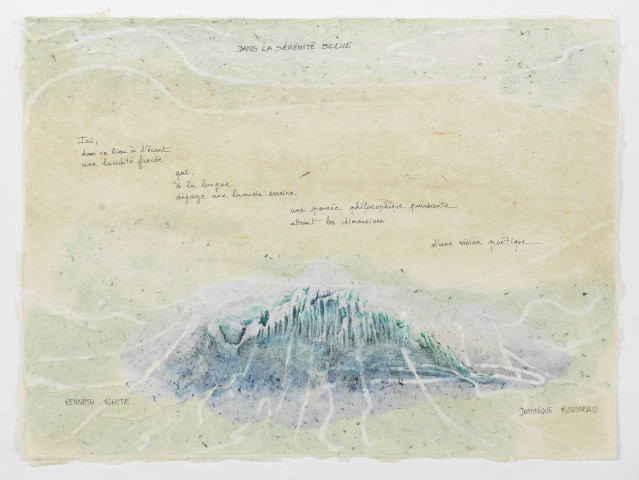 DANS LA SÉRÉNITÉ BLEUE
Ici,
dans ce lieu à l'écart
une lucidité froide
qui,
à la longue
dégage une lumière sereine
une pensée philosophique puissante
atteint les dimensions
d'une vision poétique
KENNETH WHITE
DOMINIQUE ROUSSEAU